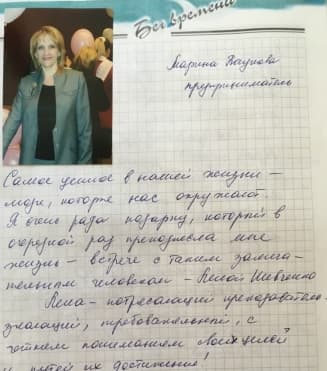 Бег времени
Марина
предприниматель
Самое ценное в нашей жизни –
люди, которые нас окружают.
Я очень рада подарку, который в
очередной раз преподнесла мне
жизнь – встрече с таким замеча-
тельным человеком – Леной Шевченко
Лена – потрясающий преподаватель –
знающий, требовательный, с
четким пониманием своих целей
и путей их достижения!